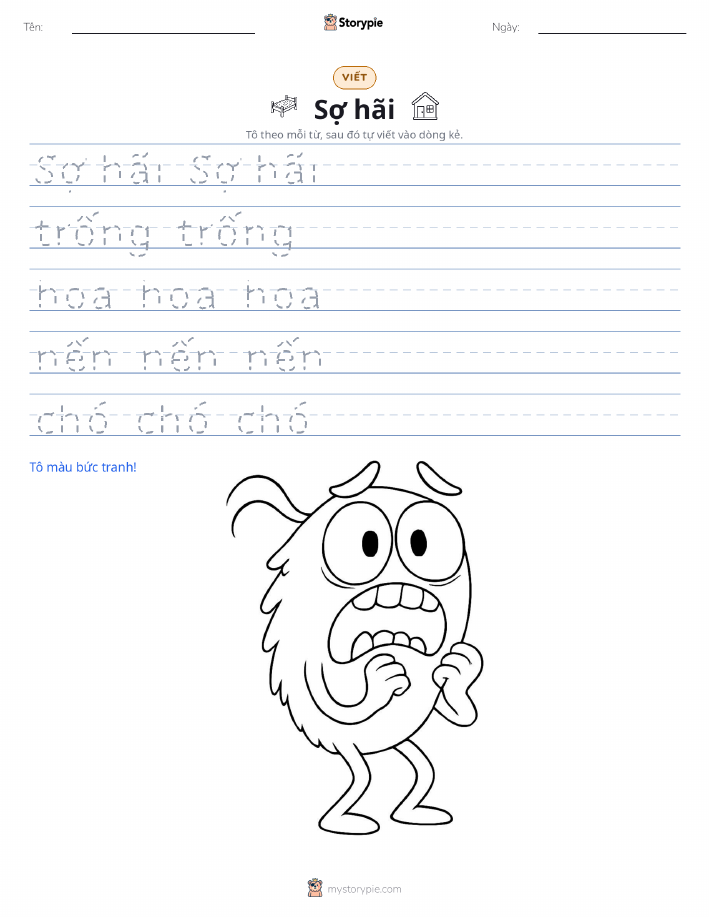 Tên:
Storypie
Ngày:
VIẾT
Sợ hãi
Tô theo mỗi từ, sau đó tự viết vào dòng kẻ.
Sợ hãi Sợ hãi
trống trống
hoa hoa hoa
nến nến nến
chó chó chó
Tô màu bức tranh!
mystorypie.com